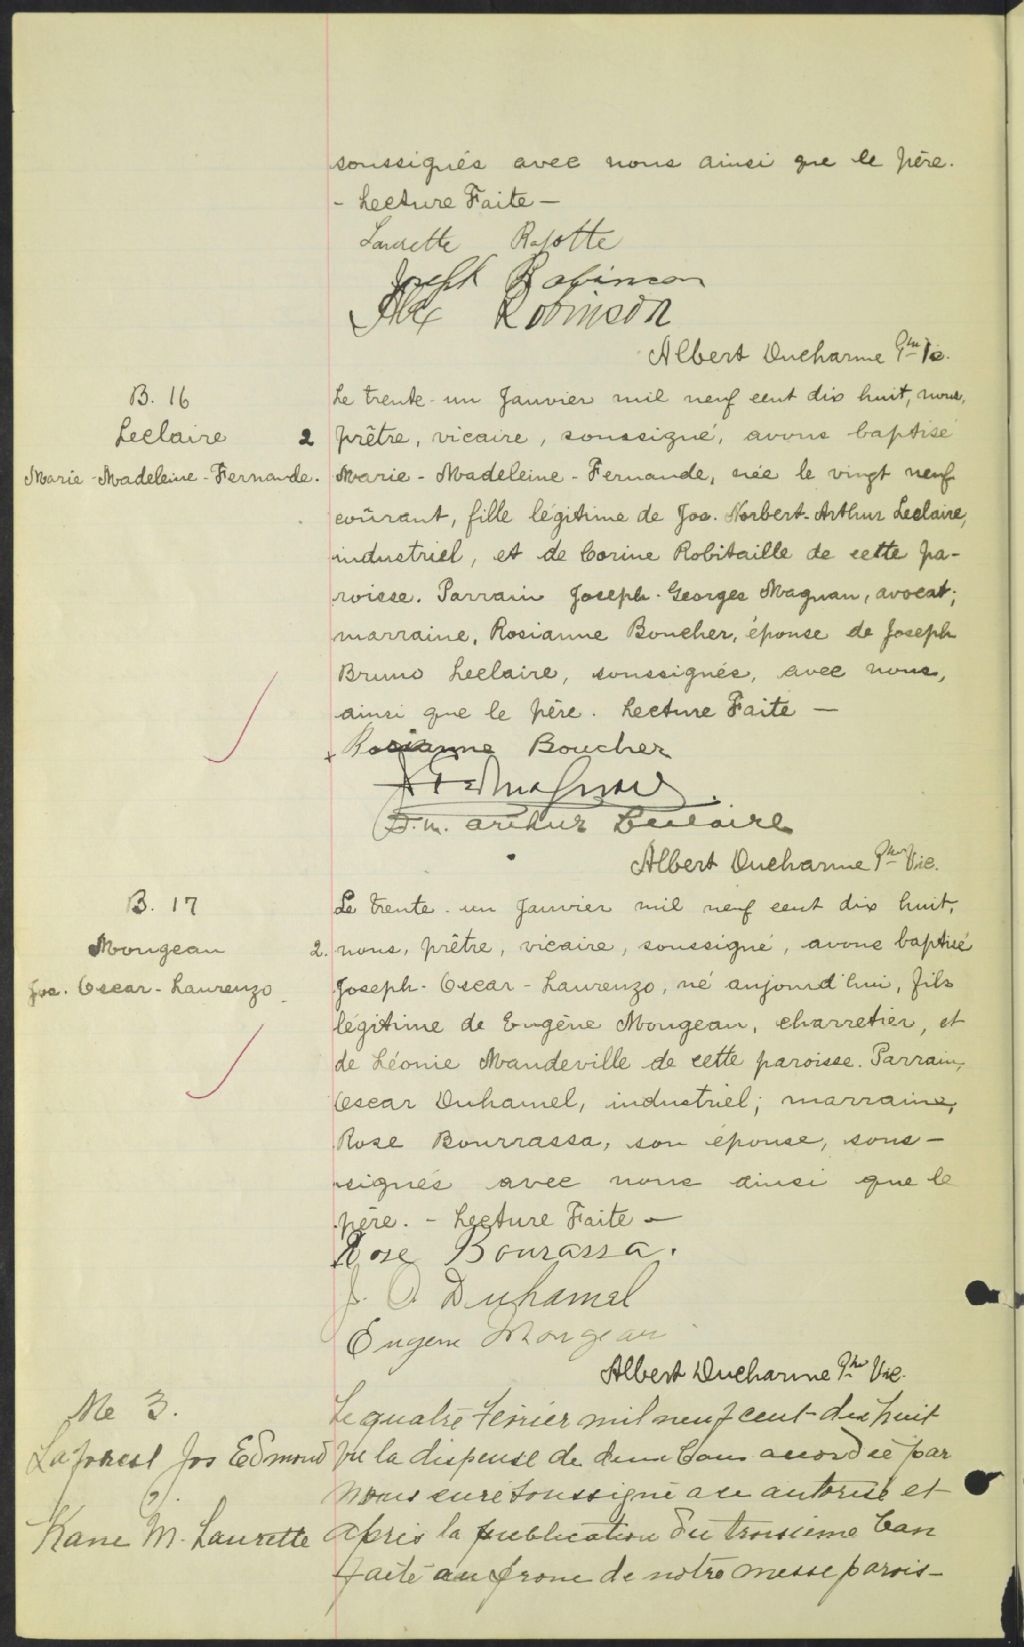 soussignés avec nous ainsi que le père.
- Lecture Faite -
Laurette Rajotte
Joseph Robinson
Alex Robinson
Albert Ducharme Ptre Vic.
B. 16
Leclaire 2
Marie-Madeleine-Fernande.
Le trente-un Janvier mil neuf cent dix huit, nous,
prêtre, vicaire, soussigné, avons baptisé
Marie-Madeleine-Fernande, née le vingt neuf
courant, fille légitime de Jos. Norbert-Arthur Leclaire,
industriel, et de Corine Robitaille de cette pa-
roisse. Parrain Joseph-Georges Magnan, avocat;
marraine, Rosianne Boucher, épouse de Joseph
Bruno Leclaire, soussignés, avec nous,
ainsi que le père. Lecture Faite -
Rosianne Boucher
Arthur Leclaire
Albert Ducharme Ptre Vic.
B. 17
Mongeau 2.
Jos. Oscar-Laurenzo
Le trente-un Janvier mil neuf cent dix huit,
nous, prêtre, vicaire, soussigné, avons baptisé
Joseph-Oscar-Laurenzo, né aujourd'hui, fils
légitime de Eugène Mongeau, charretier, et
de Léonie Mandeville de cette paroisse. Parrain,
Oscar Duhamel, industriel; marraine,
Rose Bourrassa, son épouse, sous-
signés avec nous ainsi que le
père. - Lecture Faite -
Rose Bourassa.
J. O. Duhamel
Eugene Mongeau
Albert Ducharme Ptre Vic.
Me 3.
Laforest Jos Edmond
&
Kane M. Laurette
Le quatre Fevrier mil neuf cent-dix huit
vu la dispense de deux bans accordée par
nous curé soussigné a ce autorisé et
après la publication du troisième ban
faite au prone de notre messe parois-